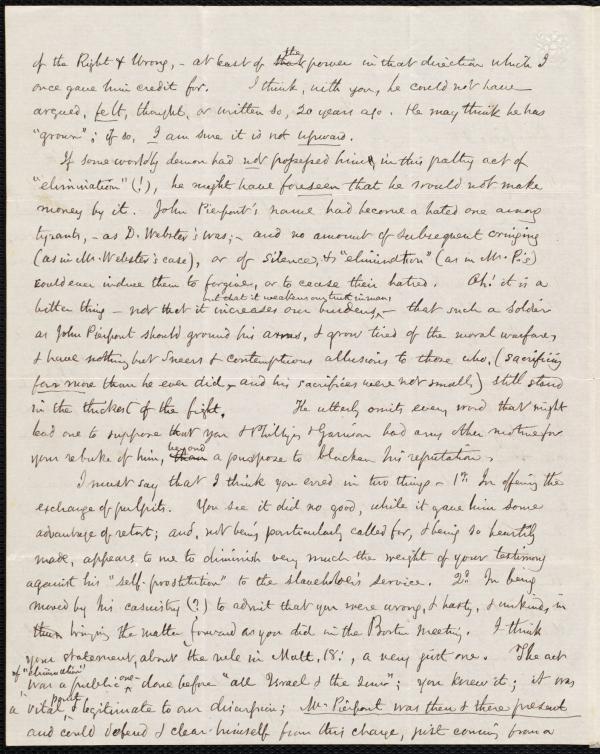 of the Right & Wrong, - at least of the power in that direction which I
once gave him credit for. I think, with you, he could not have
argued, felt, thought, or written so, 20 years ago. He may think he has
"grown"; if so, I am sure it is not upward.
If some worldly demon had not possessed him, in this paltry act of
"elimination" (!), he might have foreseen that he would not make
money by it. John Pierpont's name had become a hated one among
tyrants, - as D. Webster's was; - and no amount of subsequent cringing
(as in Mr. Webster's case), or of silence, & "elimination" (as in Mr. P's)
could ever induce them to forgive, or to cease their hatred. Oh! it is a
but that it weakens our truth in many
bitter thing - not that it increases our burdens, - that such a soldier
as John Pierpont should ground his arms, & grow tired of the moral warfare,
& have nothing but sneers & contemptuous allusions to those who, (sacrificing
far more than he ever did, and his sacrifices were not small,) still stand
in the thickest of the fight. He utterly omits every word that might
lead one to suppose that you & Phillips & Garrison had any other motive for
your rebuke of him, beyond a purpose to blacken his reputation.
I must say that I think you erred in two things - 1st. In offering the
exchange of pulpits. You see it did no good, while it gave him some
advantage of retort; and, not being particularly called for, & being so heartily
made, appears to me to diminish very much the weight of your testimony
against his "self-prostitution" to the slaveholder's service. 2d. In being
moved by his casuistry (?) to admit that you were wrong, & hasty, & unkind, in
then bringing the matter forward as you did in the Boston meeting. I think
your statement, about the rule in Matt. 18:, a very just one. The act
of "elimination"
was a public one - done before "all Israel & the Sun"; you knew it; it was
a vital point, & legitimate to our discussion; Mr. Pierpont was then & there present
and could defend & clear himself from this charge, just coming from a